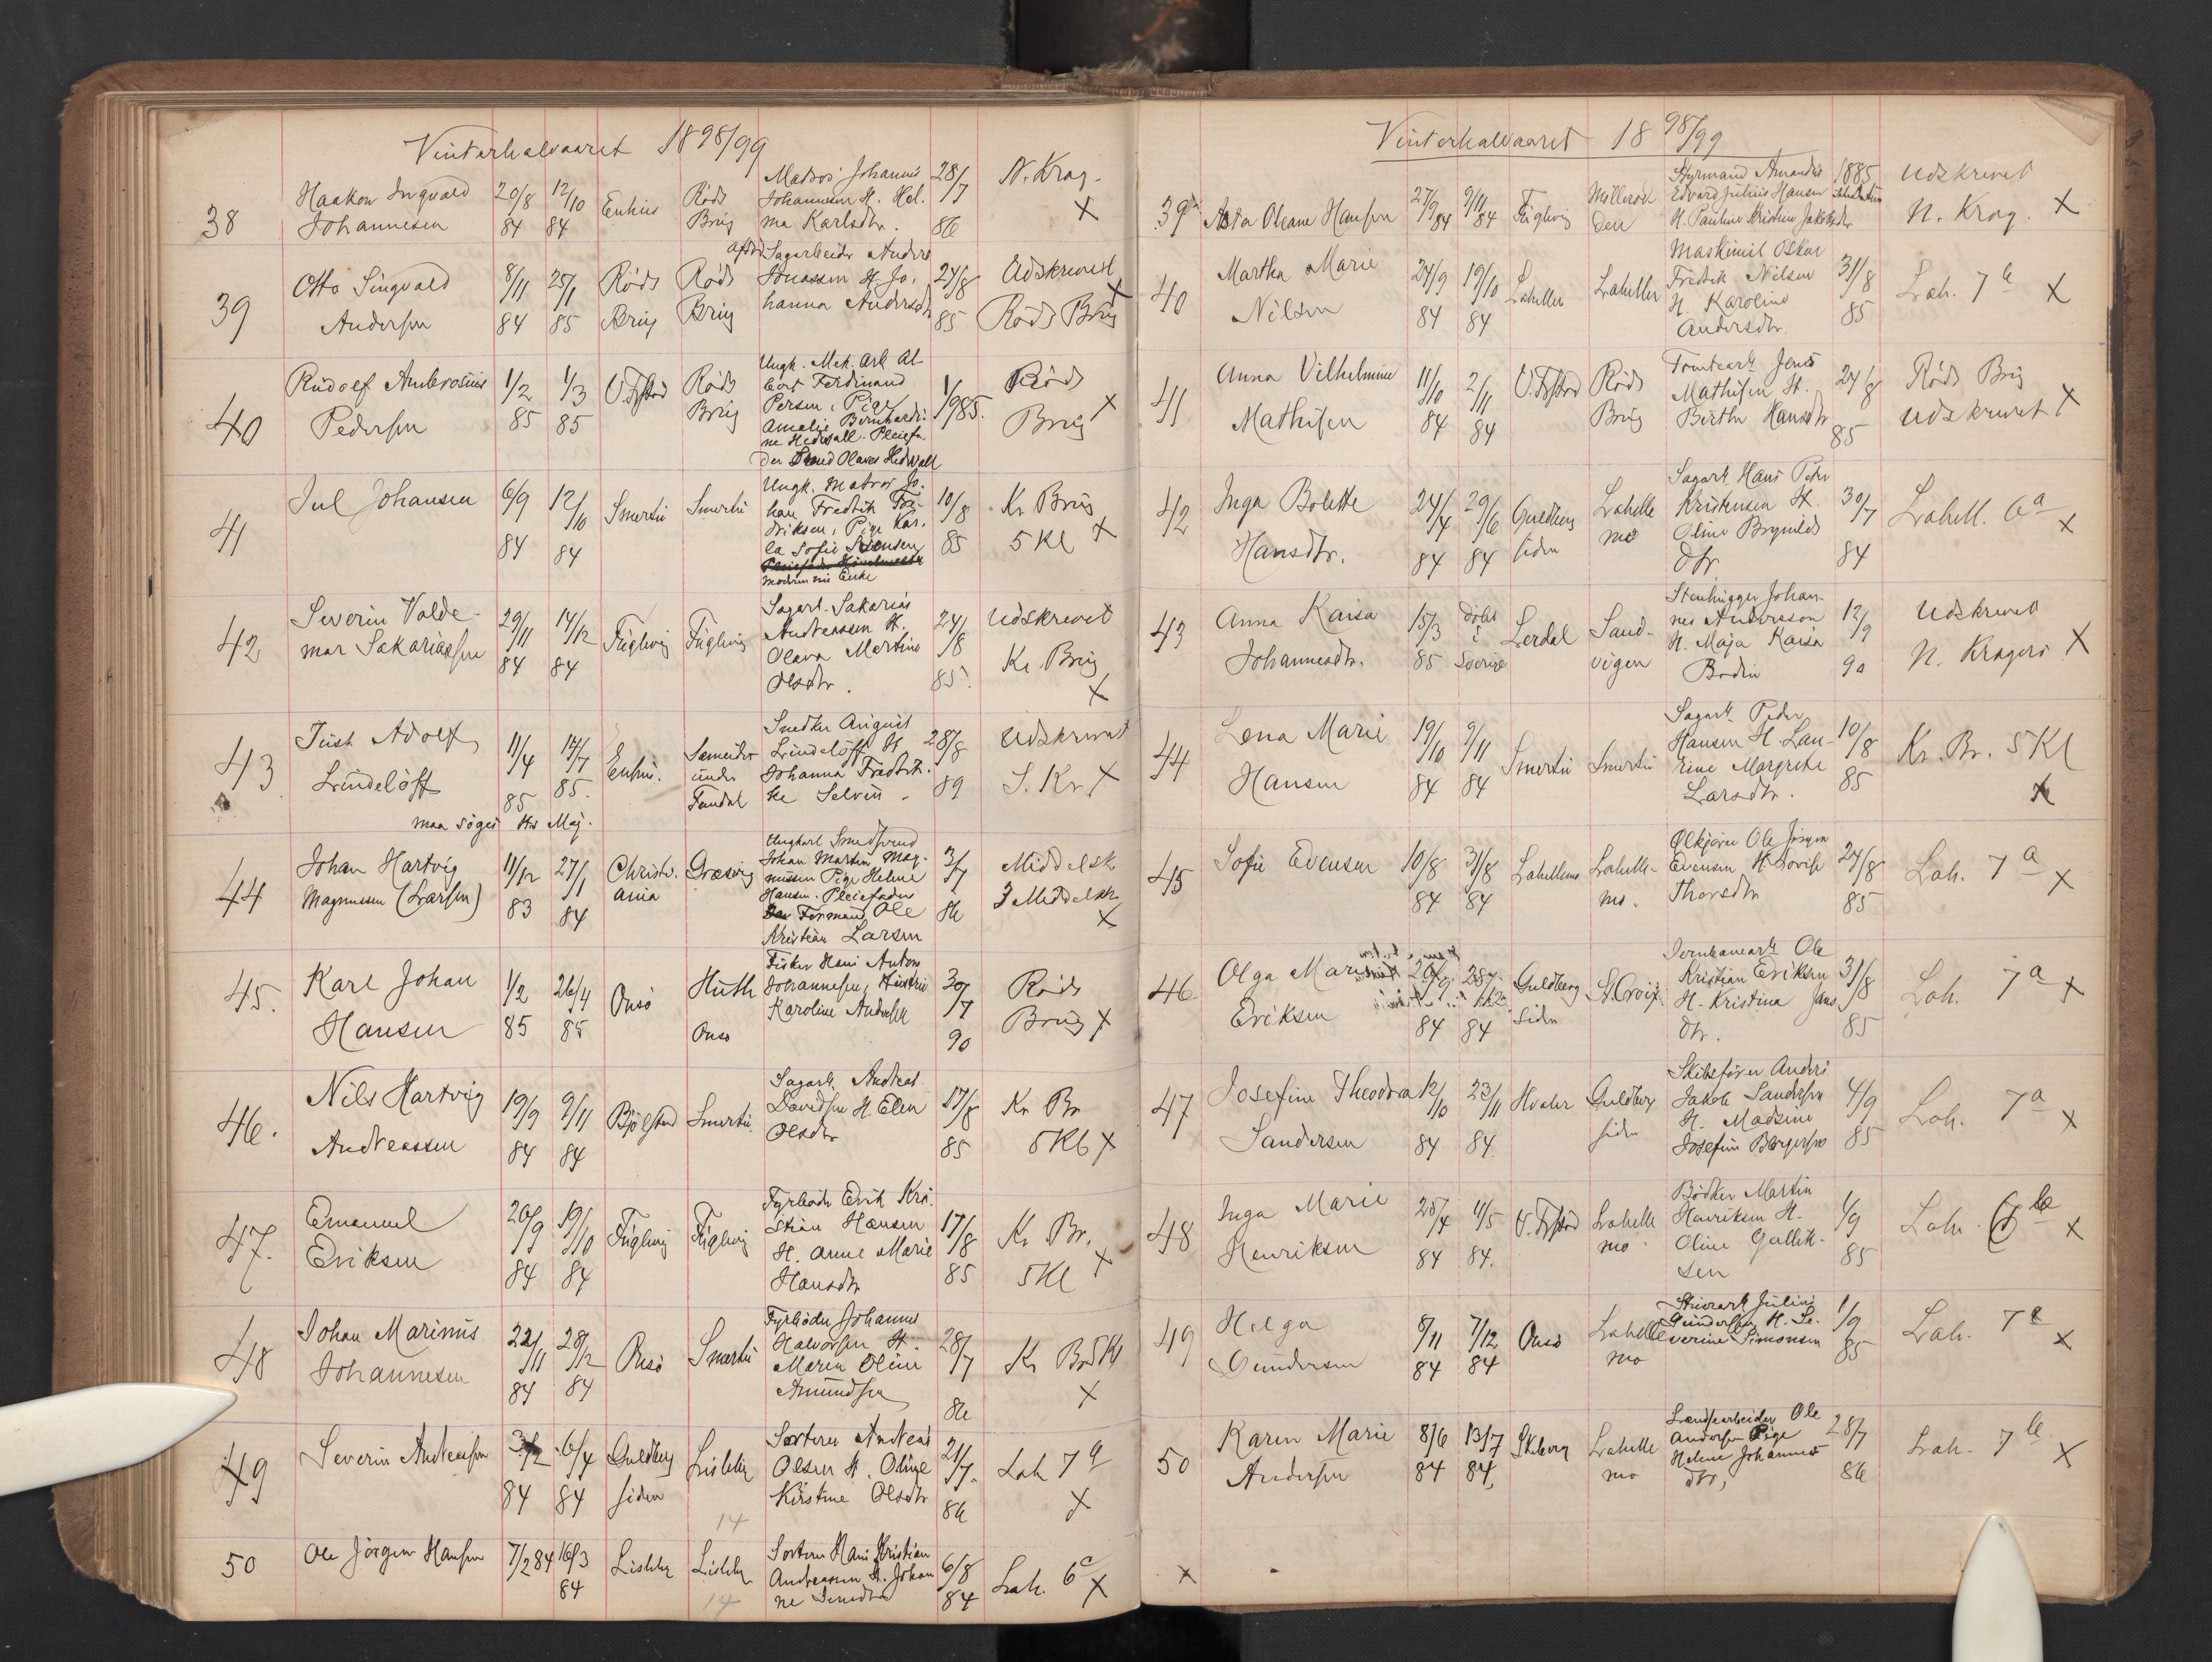 Vinterhalvaaret 1898/99
38 Haakon Ingvald Johannesen 20/8 84 12/10 84 Enhus Røds Brug Matros Johannes Johannesen H. Hel. ma Karlsdtr. 28/7 86 N. Krag. X
39 Otto Singvald Andersen 8/11 84 25/1 85 Røds Brug Røds Brug Sagarbeider Anders Jonassen H. Jo, hanna Andersdtr 24/8 85 Udskrevet Røds Brug X
40 Rudolf Ambrosius Pedersen 1/2 85 1/3 85 Røds Brug Ungk. Mek. Arb. Al- bert Ferdinand Persen, Pige Amalie Bernhardi- ne Hedvall. Pleiefa der Smed Olaves Hedvall 1/9 85. Røds Brug X
41 Jul Johansen 6/9 84 12/10 84 Smertu Smertu Ungk. Matros Jo. han Fredrik Fre- driksen, Pige Kar. la Sofie Svensen moderen nu Enke 10/8 85 Kr Brug 5 Kl X
42 Severin Valde- mar Sakariassen 29/11 84 14/12 84 Fuglevig Fuglevig Sagarb. Sakarias Andreassen H. Olava Martine Olsdtr. 24/8 85. Udskrevet Kr. Brug X
43 Just Adolf Lindeløff 11/4 85 14/7 85. Enhus. under Snedker August Lindeløff H Johanna Fredrik- ke Selven 28/8 89 Udskrevet S. Kr X
maa søges Hs Maj.
44 Johan Hartvig Magnussen (Larsen) 11/12 83 27/1 84 Christi. ania Græsvig Ungkarl Smedsvend Johan Martin Mag- nussen Pige Helene Hansen. Pleiefader Formand Ole Kristian Larsen 3/7 86 Middelsk. X
45. Karl Johan Hansen 1/2 85 26/4 85 Onsø Huth Onsø Fisker Hans Anton Johannesen, Hustru Karoline Andersen 30/7 90 Røds Brug X
46. Nils Hartvig Andreassen 19/9 84 9/11 84 Bjølstad Smertu. Sagarb. Andreas Davidsen H. Elen Olsdtr 17/8 85 Kr Br 5 Kl X
47. Emanuel Eriksen 20/9 84 19/10 84 Fuglevig Fuglevig Fyrbøder Erik Kri. stian Hansen H. Anne Marie Hansdtr 17/8 85 Kr Br. 5 Kl X
48 Johan Marinus Johannesen 22/11 84 28/12 84 Onsø Smertu Fyrbøder Johannes Halvorsen H. Maren Oline Amundsen 28/7 86 Kr Br 5 Kl X
49 Severin Andreasen 84 6/4 84 Guldberg siden Lisleby Sorterer Andreas Olsen H. Oline Kirstine Olsdtr 21/7. 86 Lah 7 a X
14
50 Ole Jörgen Hansen 7/2 84 16/3 84 Lisleby Lisleby Sorterer Hans Kristian Andreassen H. Johan ne Jensdtr 6/8 84 Lah. 6 c X
14
Vinterhalvaaret 1898/99
39 Asta Oleane Hansen 27/9 84 9/11 84 Fuglevig Møllerod den Styrmand Amandus Edvard Julius Hansen H. Pauline Kristine Jakobsdtr 1885 Udskrevet N. Krag. X
40 Martha Marie Nilsen 24/9 84 19/10 84 Lahellen Lahellen Maskinist Oskar Fredrik Nilsen H. Karoline Andersdtr. 31/8 85 Lah. 7 b X
41 Anna Vilhelmine Mathisen 11/10 84 2/11 84 Røds Brug Tomtearb. Jens Mathisen H. Birthe Hansdtr 24/8 85 Røds Brug Udskrevet X
42 Inga Bolette Hansdtr. 24/4 84 29/6 84 Guldberg siden Lahelle mo Sagarb. Hans Peter Kristensen H. Oline Brynilds dtr. 30/7 84 Lahell. 6 a X
43 Anna Kaisa Johannesdtr. 15/3 85 døbt i Sverige Lerdal Sand- vigen Stenhugger Johan- nes Andersson H. Maja Kaisa Bodin 12/9 90 Udskrevet N. Kragerø X
44 Lena Marie Hansen 19/10 84 9/11 84 Smertu Smertu Sagarb. Peder Hansen H. Lau- rine Margrete Larsdtr. 10/8 85 Kr. Br. 5 Kl X
45 Sofie Evensen 10/8 84 31/8 84 Lahellemo Lahelle- mo. Ølkjører Ole Jörgen Evensen H. Lovise Thorsdtr 24/8 85 Lah. 7 a X
46. Olga Marie Eriksen 84 84 Guldberg siden St. Croix Jernbanearb. Ole Kristian Eriksen H. Kristina Jans dtr. 31/8 85 Lah. 7 a X
47 Josefine Theodora Sandersen 12/10 84 23/11 84. Hvaler Guldberg siden Skibsfører Anders Jakob Sandersen H. Madsine Josefine Børgersen 4/9 85 Lah. 7 a X
48 Inga Marie Henriksen 84 4/5 84. Lahelle mo Bødker Martin Henriksen H. Oline Gullik- sen 1/9 85 Lah. b X
49 Helga Gundersen 8/11 84 7/12 84 Onsø Lahelle mo Stuearb. Julius Gundersen H. Se- verine Simonsen 1/9 85 Lah. 7 X
50 Karen Marie Andersen 8/6 84 13/7 84, Skiberg Lahelle mo Landsearbeider Ole Andersen Pige Helene Johannes dtr, 28/7 86 Lah. 7 b X
X